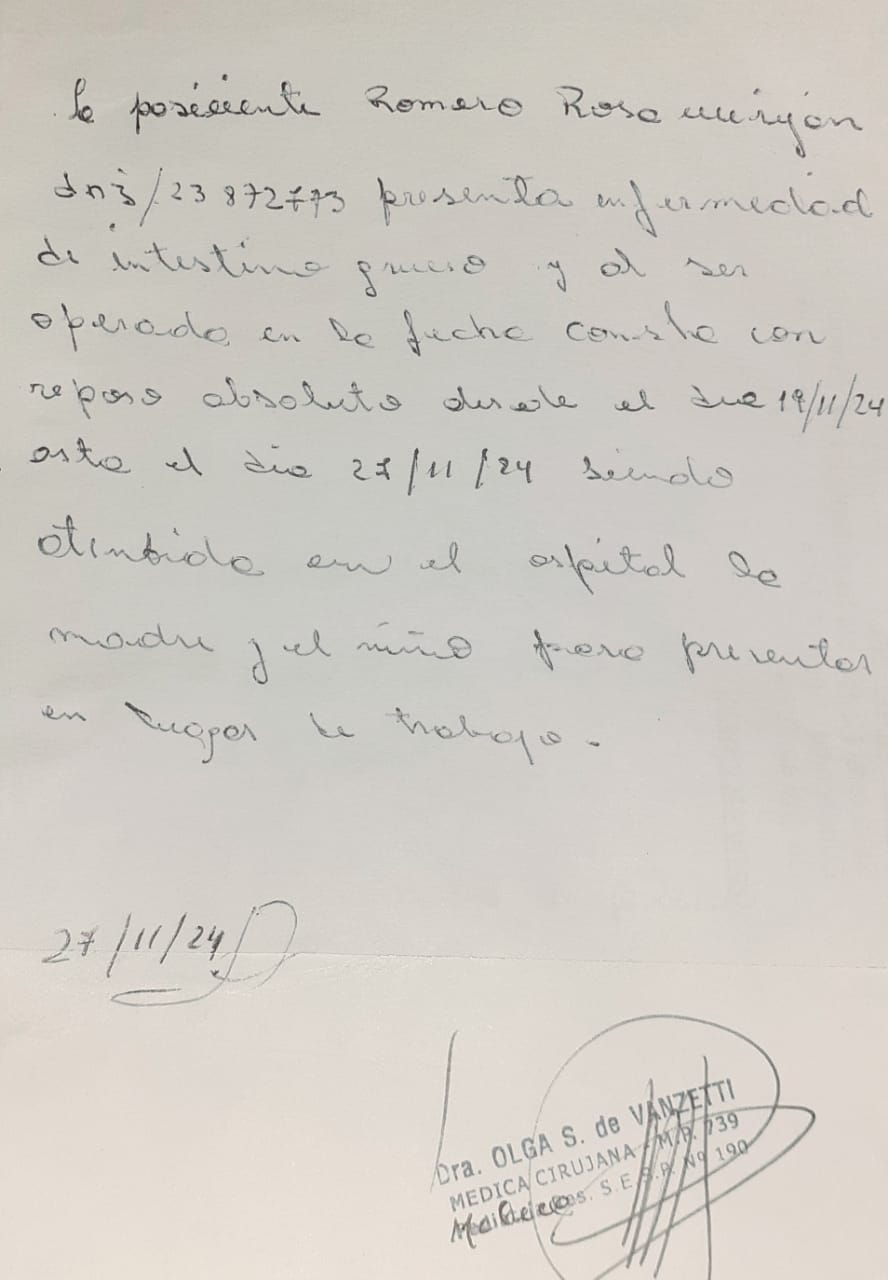 la posiciente Romero Rosa miryan
dni/23872773 presenta enfermedad
de intestino grueso y al ser
operada en la fecha consta con
reposo absoluto desde el dia 19/11/24
asta el dia 27/11/24 siendo
atindida en el ospital la
madre y el niño para presentar
en lugar de trabajo.
27/11/24
Dra. OLGA S. de VANZETTI
MEDICA CIRUJANA - M.P. 739
S.E.S.P. Nº 190